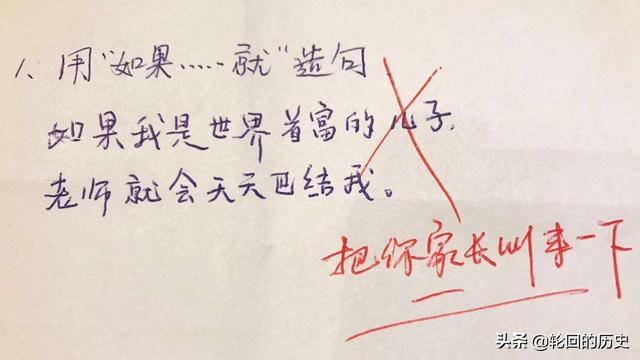 1、用"如果……就"造句
如果我是世界首富的儿子,
老师就会天天巴结我。
把你家长叫来一下
头条 @轮回的历史